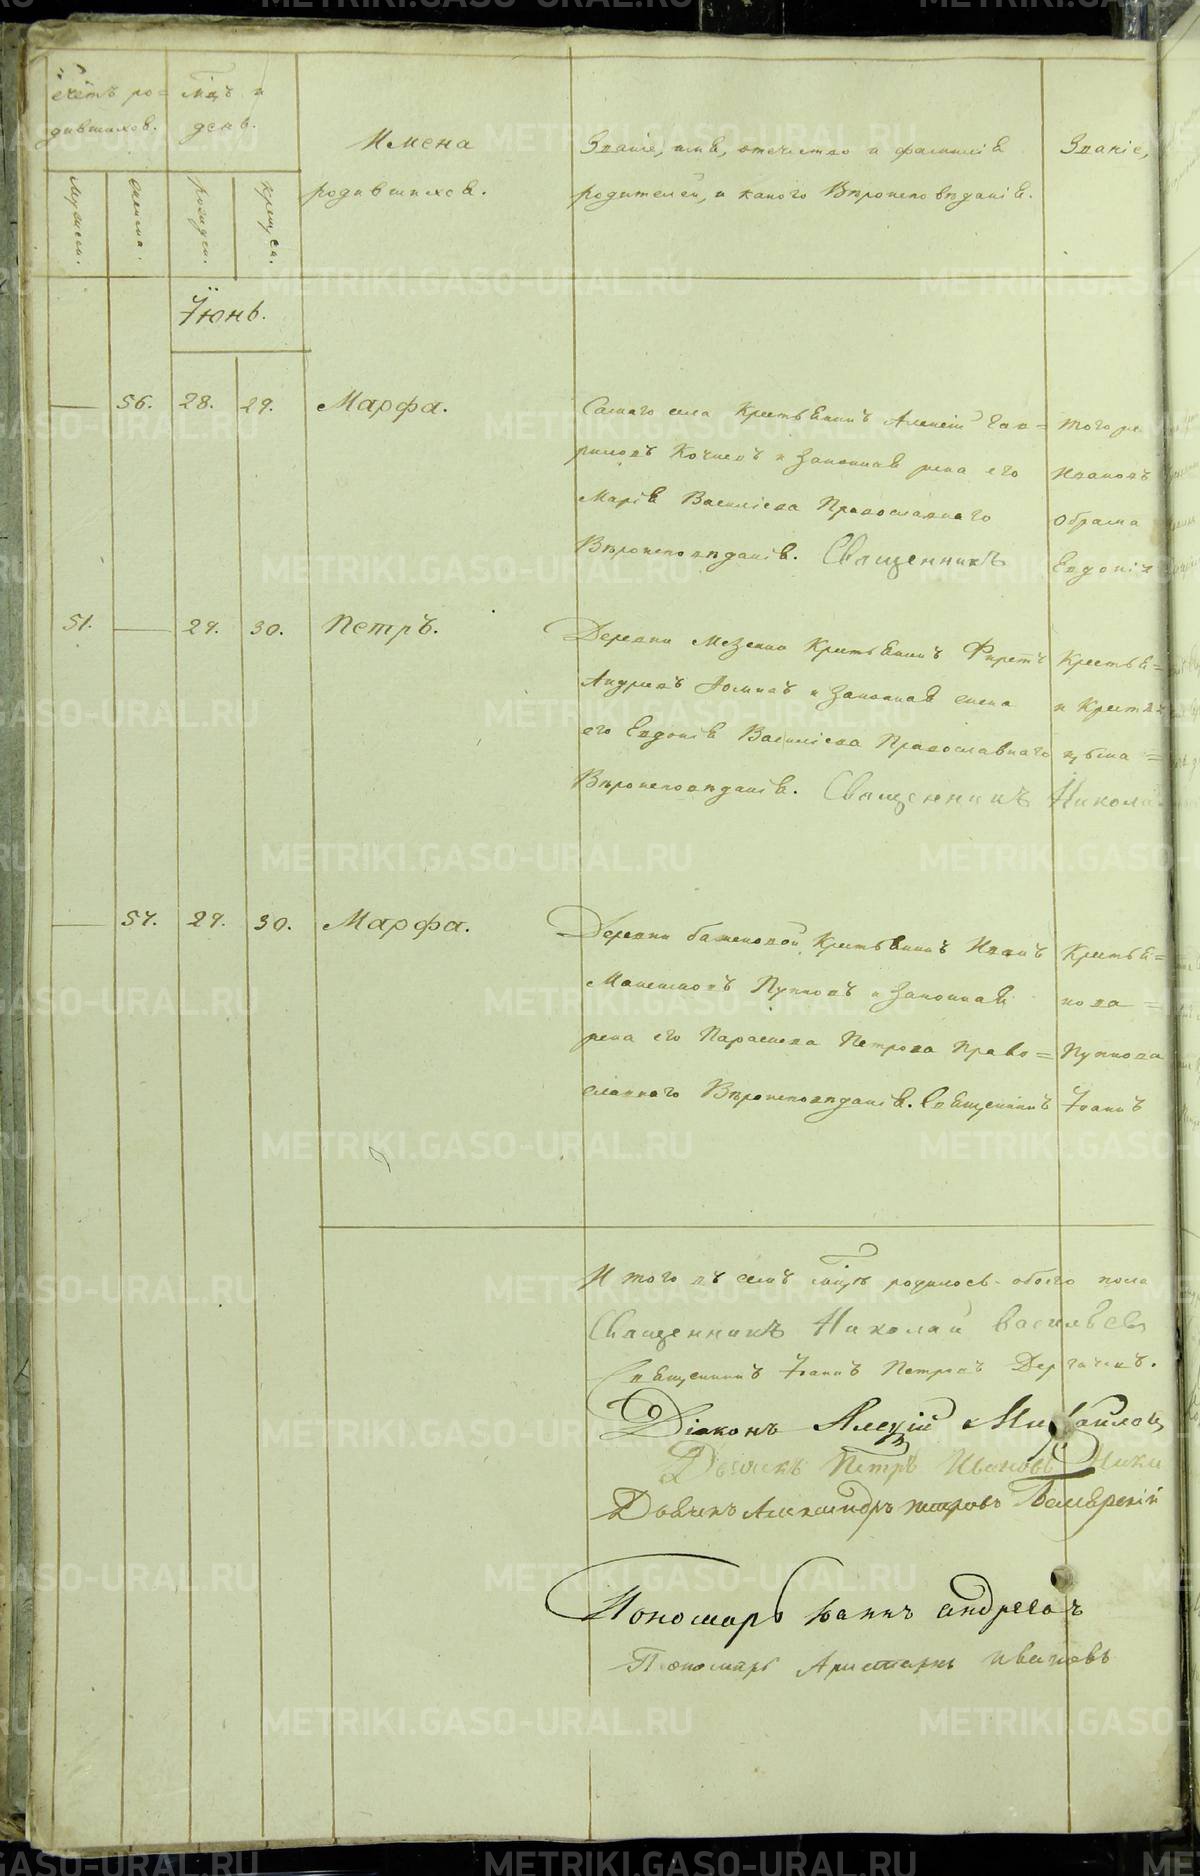 Счетъ ро=
дившихся.
Мцъ и
день.
Имена
родившихся.
Званіе, имя, отечество и фамилія
родителей, и какого Вѣроисповѣданія.
Званіе,
Мужеск.
Женска.
рожден.
крещен.
Іюнь.
56. 28. 29. Марфа.
Самого села Крестьянинъ Алексій Гав=
риловъ Кочневъ и Законная жена его
Марія Василіева Православнаго
Вѣроисповѣданія. Священникъ
того же
Ивановъ
образна
Евдокія
51. 29. 30. Петръ.
Деревни Мезенки Крестьянинъ
Андреевъ и Законная жена
его Евдокія Василіева Православнаго
Вѣроисповѣданія. Священникъ Никола
Крестья=
и Крестья
57. 29. 30. Марфа.
Деревни баженовой Крестьянинъ Иванъ
Моисеевъ Пупковъ и Законная
жена его Параскева Петрова Право=
славнаго Вѣроисповѣданія. Священникъ Іоаннъ
Крестья=
нова =
Пупкова
Итого въ семъ мцѣ родилось обоего пола
Священникъ Николай Васильев
Священникъ Іоаннъ Петровъ Дергачевъ.
Діаконъ Алексій Михайлов
Дьячекъ Петръ Ивановъ Ники
Дьячекъ Александръ петровъ
Пономарь Іоаннъ андреевъ
Пономарь Аристархъ Ивановъ
METRIKI.GASO-URAL.RU